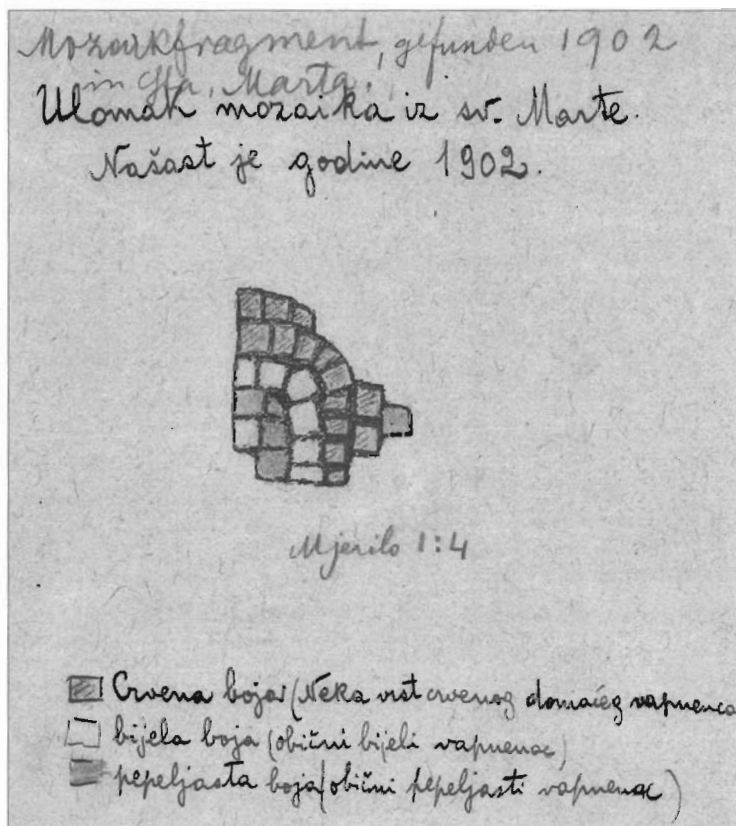 Mozaikfragment, gefunden 1902
in Sta. Marta.
Ulomak mozaika iz sv. Marte.
Našast je godine 1902.
Mjerilo 1:4
Crvena boja (Neka vrst crvenog domaćeg vapnenca
bijela boja (obični bijeli vapnenac)
pepeljasta boja (obični pepeljasti vapnenac)